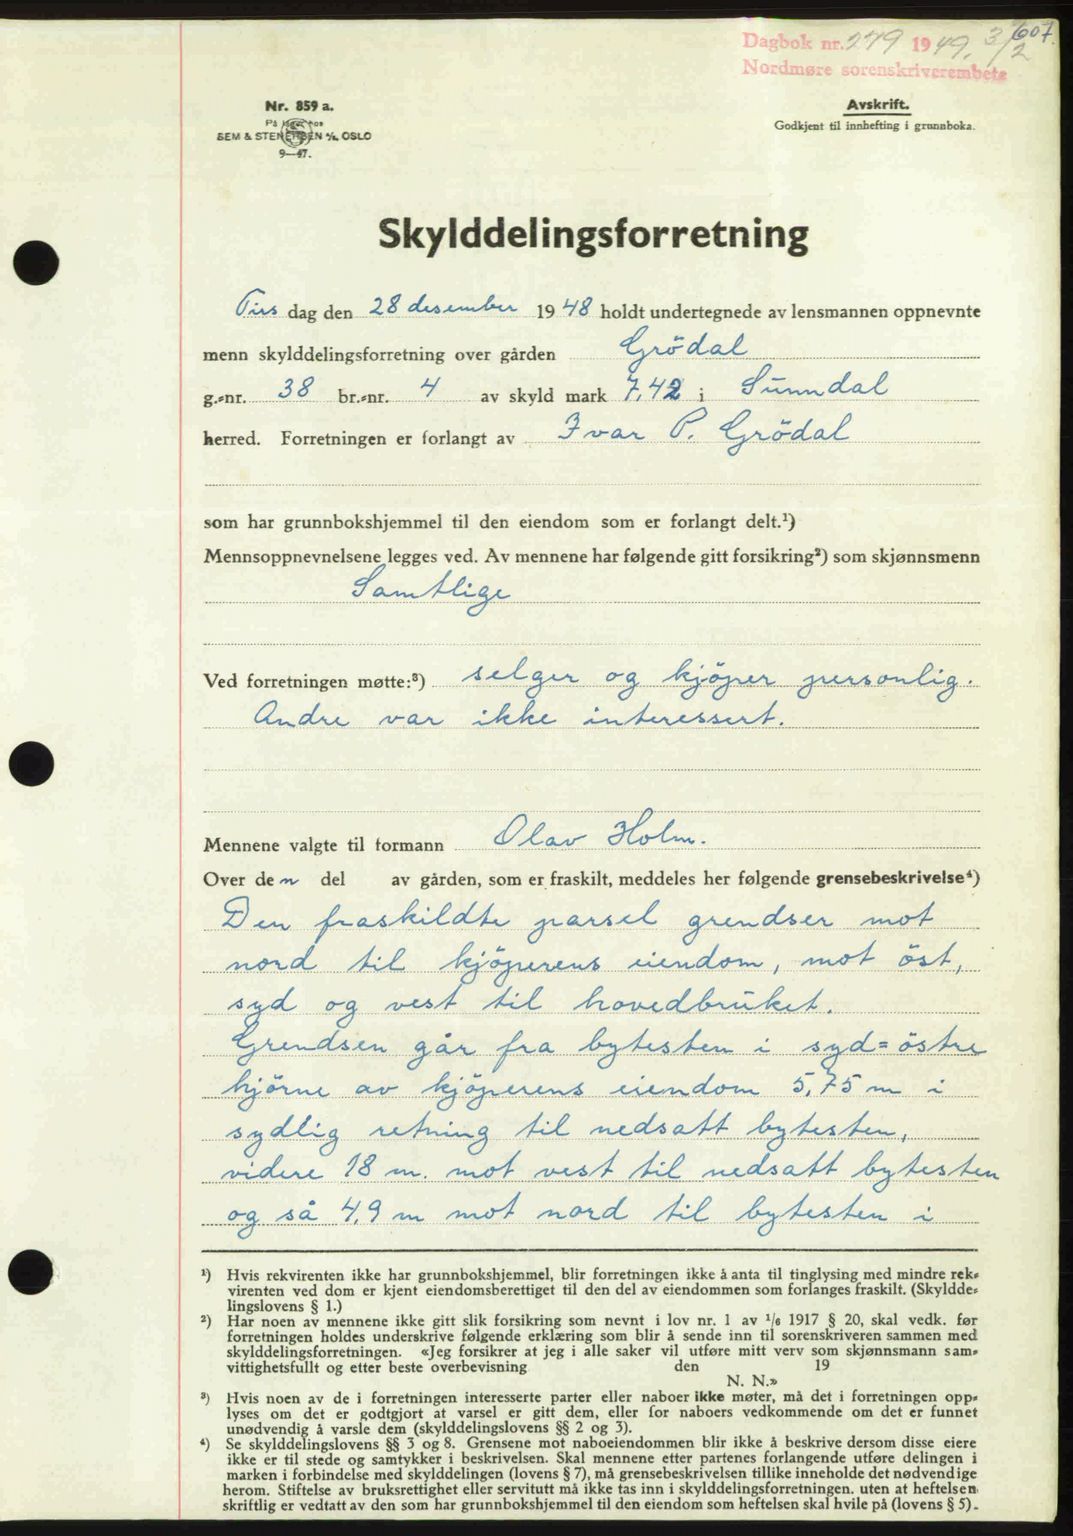 607.
Dagbok nr. 279 1949. 3/2
Nordmøre sorenskriverembete
Nr. 859 a.
På lager hos
SEM & STENERSEN A/S, OSLO
9—47.
Avskrift.
Godkjent til innhefting i grunnboka.
Skylddelingsforretning
Tirsdag den 28 desember 1948 holdt undertegnede av lensmannen oppnevnte
menn skylddelingsforretning over gården Grödal
g.-nr. 38 br.-nr. 4 av skyld mark 7,42 i Sunndal
herred. Forretningen er forlangt av Ivar P. Grödal
som har grunnbokshjemmel til den eiendom som er forlangt delt.¹)
Mennsoppnevnelsene legges ved. Av mennene har følgende gitt forsikring²) som skjønnsmenn
Samtlige
Ved forretningen møtte:³) selger og kjöper personlig.
Andre var ikke interessert.
Mennene valgte til formann Olav Holm.
Over den del av gården, som er fraskilt, meddeles her følgende grensebeskrivelse⁴)
Den fraskildte parsel grendser mot
nord til kjöperens eiendom, mot öst,
syd og vest til hovedbruket.
Grendsen går fra bytesten i syd=östre
hjörne av kjöperens eiendom 5,75 m i
sydlig retning til nedsatt bytesten,
videre 18 m. mot vest til nedsatt bytesten
og så 4,9 m mot nord til bytesten i
¹) Hvis rekvirenten ikke har grunnbokshjemmel, blir forretningen ikke å anta til tinglysing med mindre rek-
virenten ved dom er kjent eiendomsberettiget til den del av eiendommen som forlanges fraskilt. (Skyldde-
lingslovens § 1.)
²) Har noen av mennene ikke gitt slik forsikring som nevnt i lov nr. 1 av 1/6 1917 § 20, skal vedk. før
forretningen holdes underskrive følgende erklæring som blir å sende inn til sorenskriveren sammen med
skylddelingsforretningen. «Jeg forsikrer at jeg i alle saker vil utføre mitt verv som skjønnsmann sam-
vittighetsfullt og etter beste overbevisning den 19
N. N.»
³) Hvis noen av de i forretningen interesserte parter eller naboer ikke møter, må det i forretningen opp-
lyses om det er godtgjort at varsel er gitt dem, eller for naboers vedkommende om det er funnet
unødvendig å varsle dem (skylddelingslovens §§ 2 og 3).
⁴) Se skylddelingslovens §§ 3 og 8. Grensene mot naboeiendommen blir ikke å beskrive dersom disse eiere
ikke er til stede og samtykker i beskrivelsen. Skal mennene etter partenes forlangende utføre delingen i
marken i forbindelse med skylddelingen (lovens § 7), må grensebeskrivelsen tillike inneholde det nødvendige
herom. Stiftelse av bruksrettighet eller servitutt må ikke tas inn i skylddelingsforretningen. uten at heftelsen
skriftlig er vedtatt av den som har grunnbokshjemmel til den eiendom som heftelsen skal hvile på (lovens § 5).